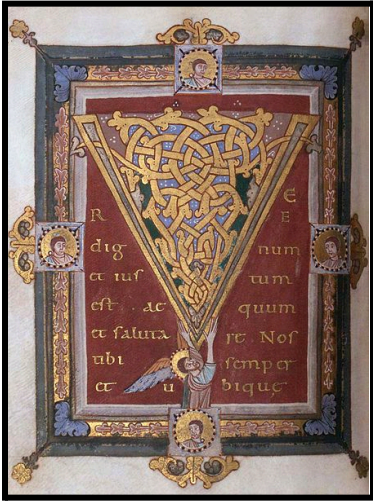 V E
R E
dig num
et ius tum
est . ae quum
et saluta re . Nos
tibi semper
et u bique